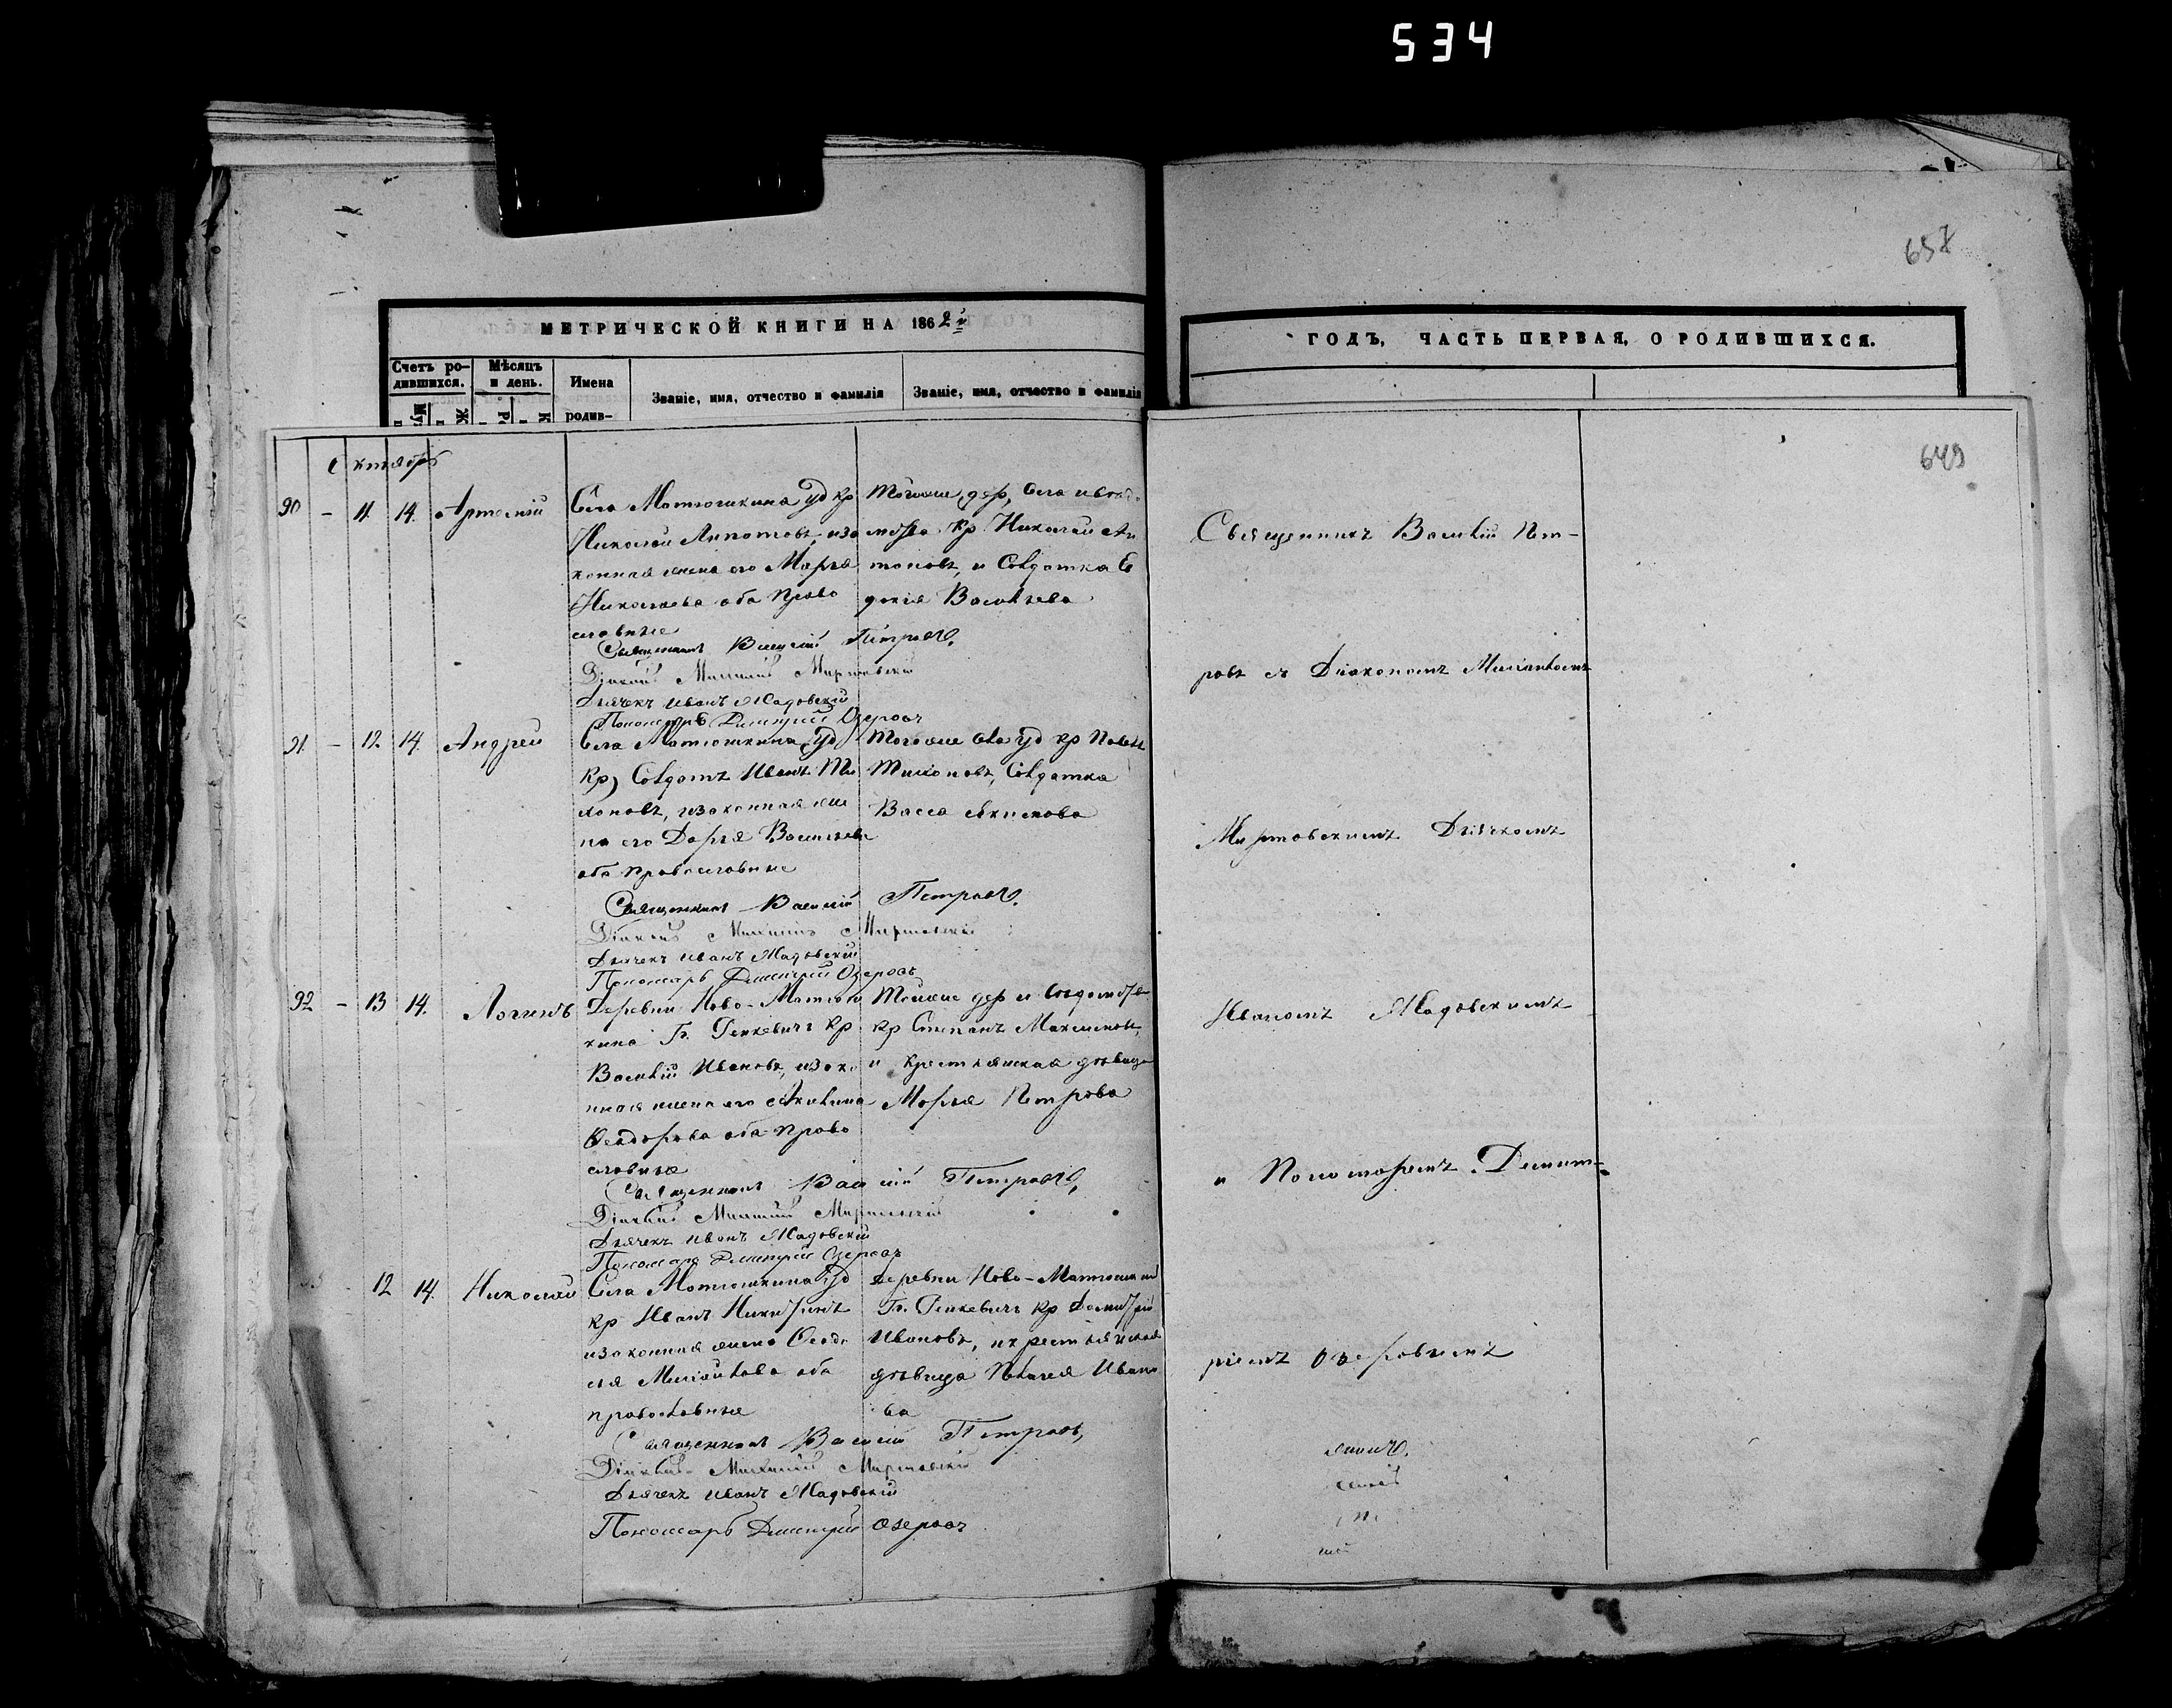 534
657
МЕТРИЧЕСКОЙ КНИГИ НА 1862й
ГОДЪ, ЧАСТЬ ПЕРВАЯ, О РОДИВШИХСЯ.
Счетъ ро-
дившихся.
Мѣсяцъ
и день.
Имена
родив-
Званіе, имя, отчество и фамилія
Званіе, имя, отчество и фамилія
649
Октябрь
90 - 11. 14. Артемій
Села Матюшкина уд кр
Николай Антоновъ, изо
конная жена его Марья
Николаева оба право
славные
кр Николай Ан
тоновъ, и Солдатка Ев
докія Васильева
Священникъ Василій Петровъ.
Діаконъ Михаилъ Миртовскій
Дьячекъ Иванъ Жадовскій
Пономарь Димитрій Озеровъ
91. - 12. 14. Андрей
Села Матюшкина, уд
кр, Солдатъ Иванъ Ти
хоновъ, изаконная же
на его Дарья Васильева
оба православные
Тогоже села уд кр Павелъ
Тихоновъ, Солдатка
Васса Акимова
Священникъ Василій Петровъ.
Діаконъ Михаилъ Миртовскій
Дьячекъ Иванъ Жадовскій
Пономарь Димитрій Озеровъ
92 - 13 14. Логинъ
Деревни Ново-Матюш
кина Гг. Генкевичъ кр
Василій Ивановъ, изоко
нная жена его Акилина
Феодорова оба право
славные
Тойже дер и
кр Степанъ Максимовъ,
и крестьянская дѣвица
Марья Петрова
Священникъ Василій Петровъ,
Діаконъ Михаилъ Миртовскій
Дьячекъ Иванъ Жадовскій
Пономарь Димитрій Озеровъ
12 14. Николай
Села Матюшкина уд
кр Иванъ
изаконная жена Феодо
сья Михайлова оба
православные
Деревни Ново-Матюшкина
Гг. Генкевичъ кр Димитрій
Ивановъ, и крестьянская
дѣвица Пелагея Ивано
ва
Священникъ Василій Петровъ,
Діаконъ Михаилъ Миртовскій
Дьячекъ Иванъ Жадовскій
Пономарь Димитрій Озеровъ
Священникъ Василій Пет-
ровъ съ Діакономъ Михаиломъ
Миртовскимъ Дьячкомъ
Иваномъ Жадовскимъ
и Пономаремъ Димит-
ріемъ Озеровымъ